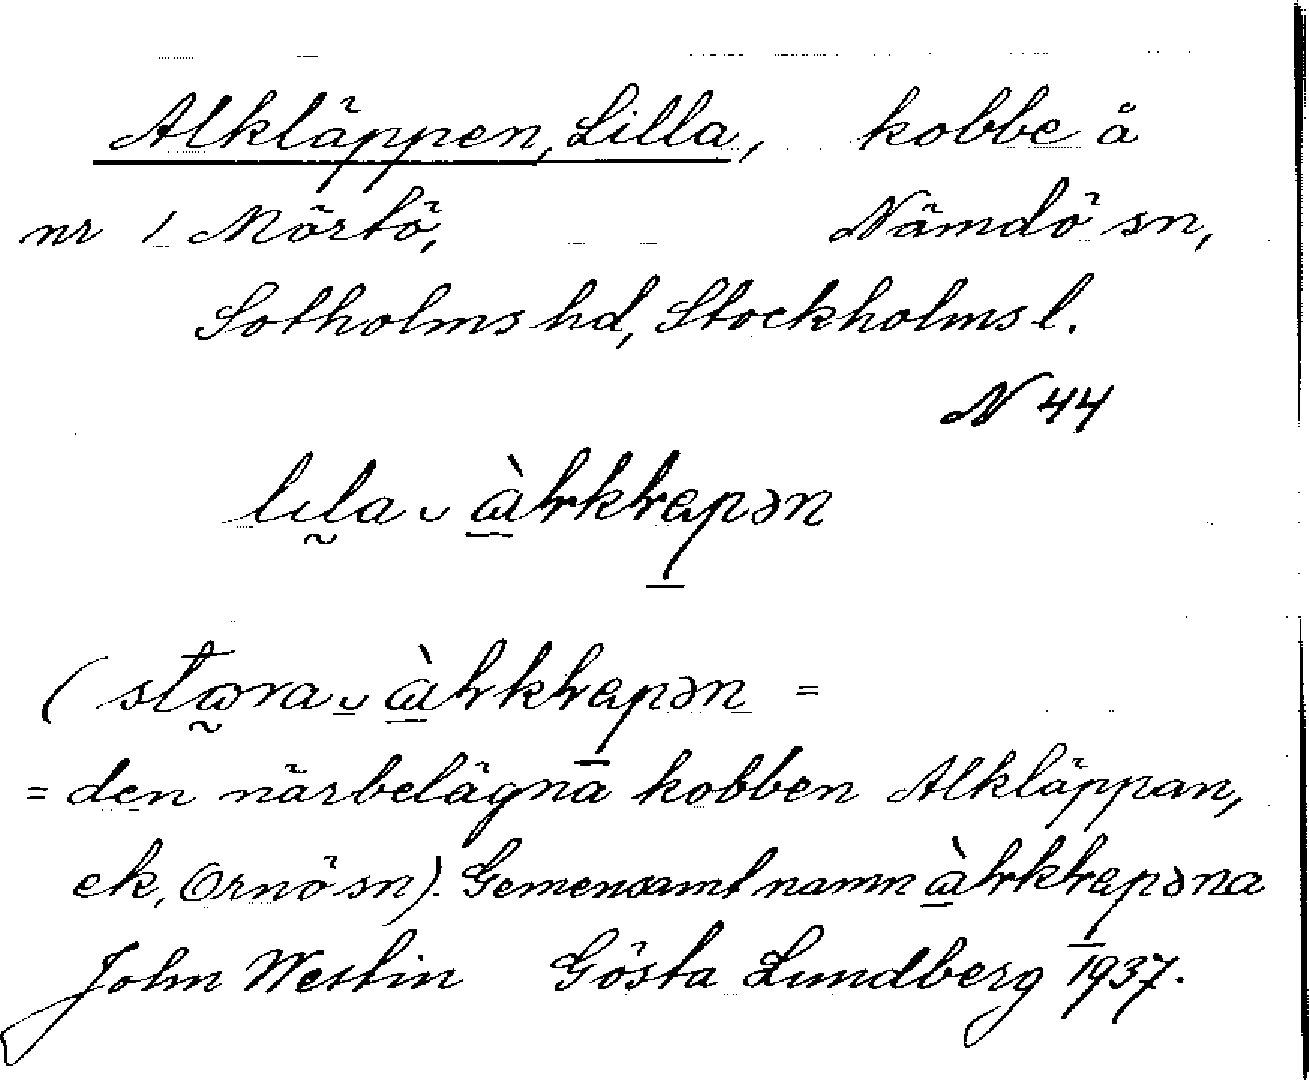 Alkläppen, Lilla, kobbe å
nr 1 Mörtö, Nämdö sn,
Sotholms hd, Stockholms l.
N 44
lıla ᴗ
(stɷra ᴗ =
= den närbelägna kobben Alkläppan,
ek, Ornö sn). Gemensamt namn
John Westin Gösta Lundberg 1937.